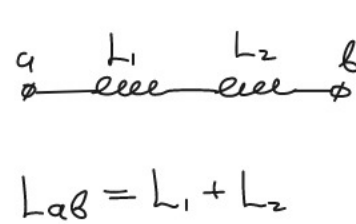 a L₁ L₂ b
Lab = L₁ + L₂